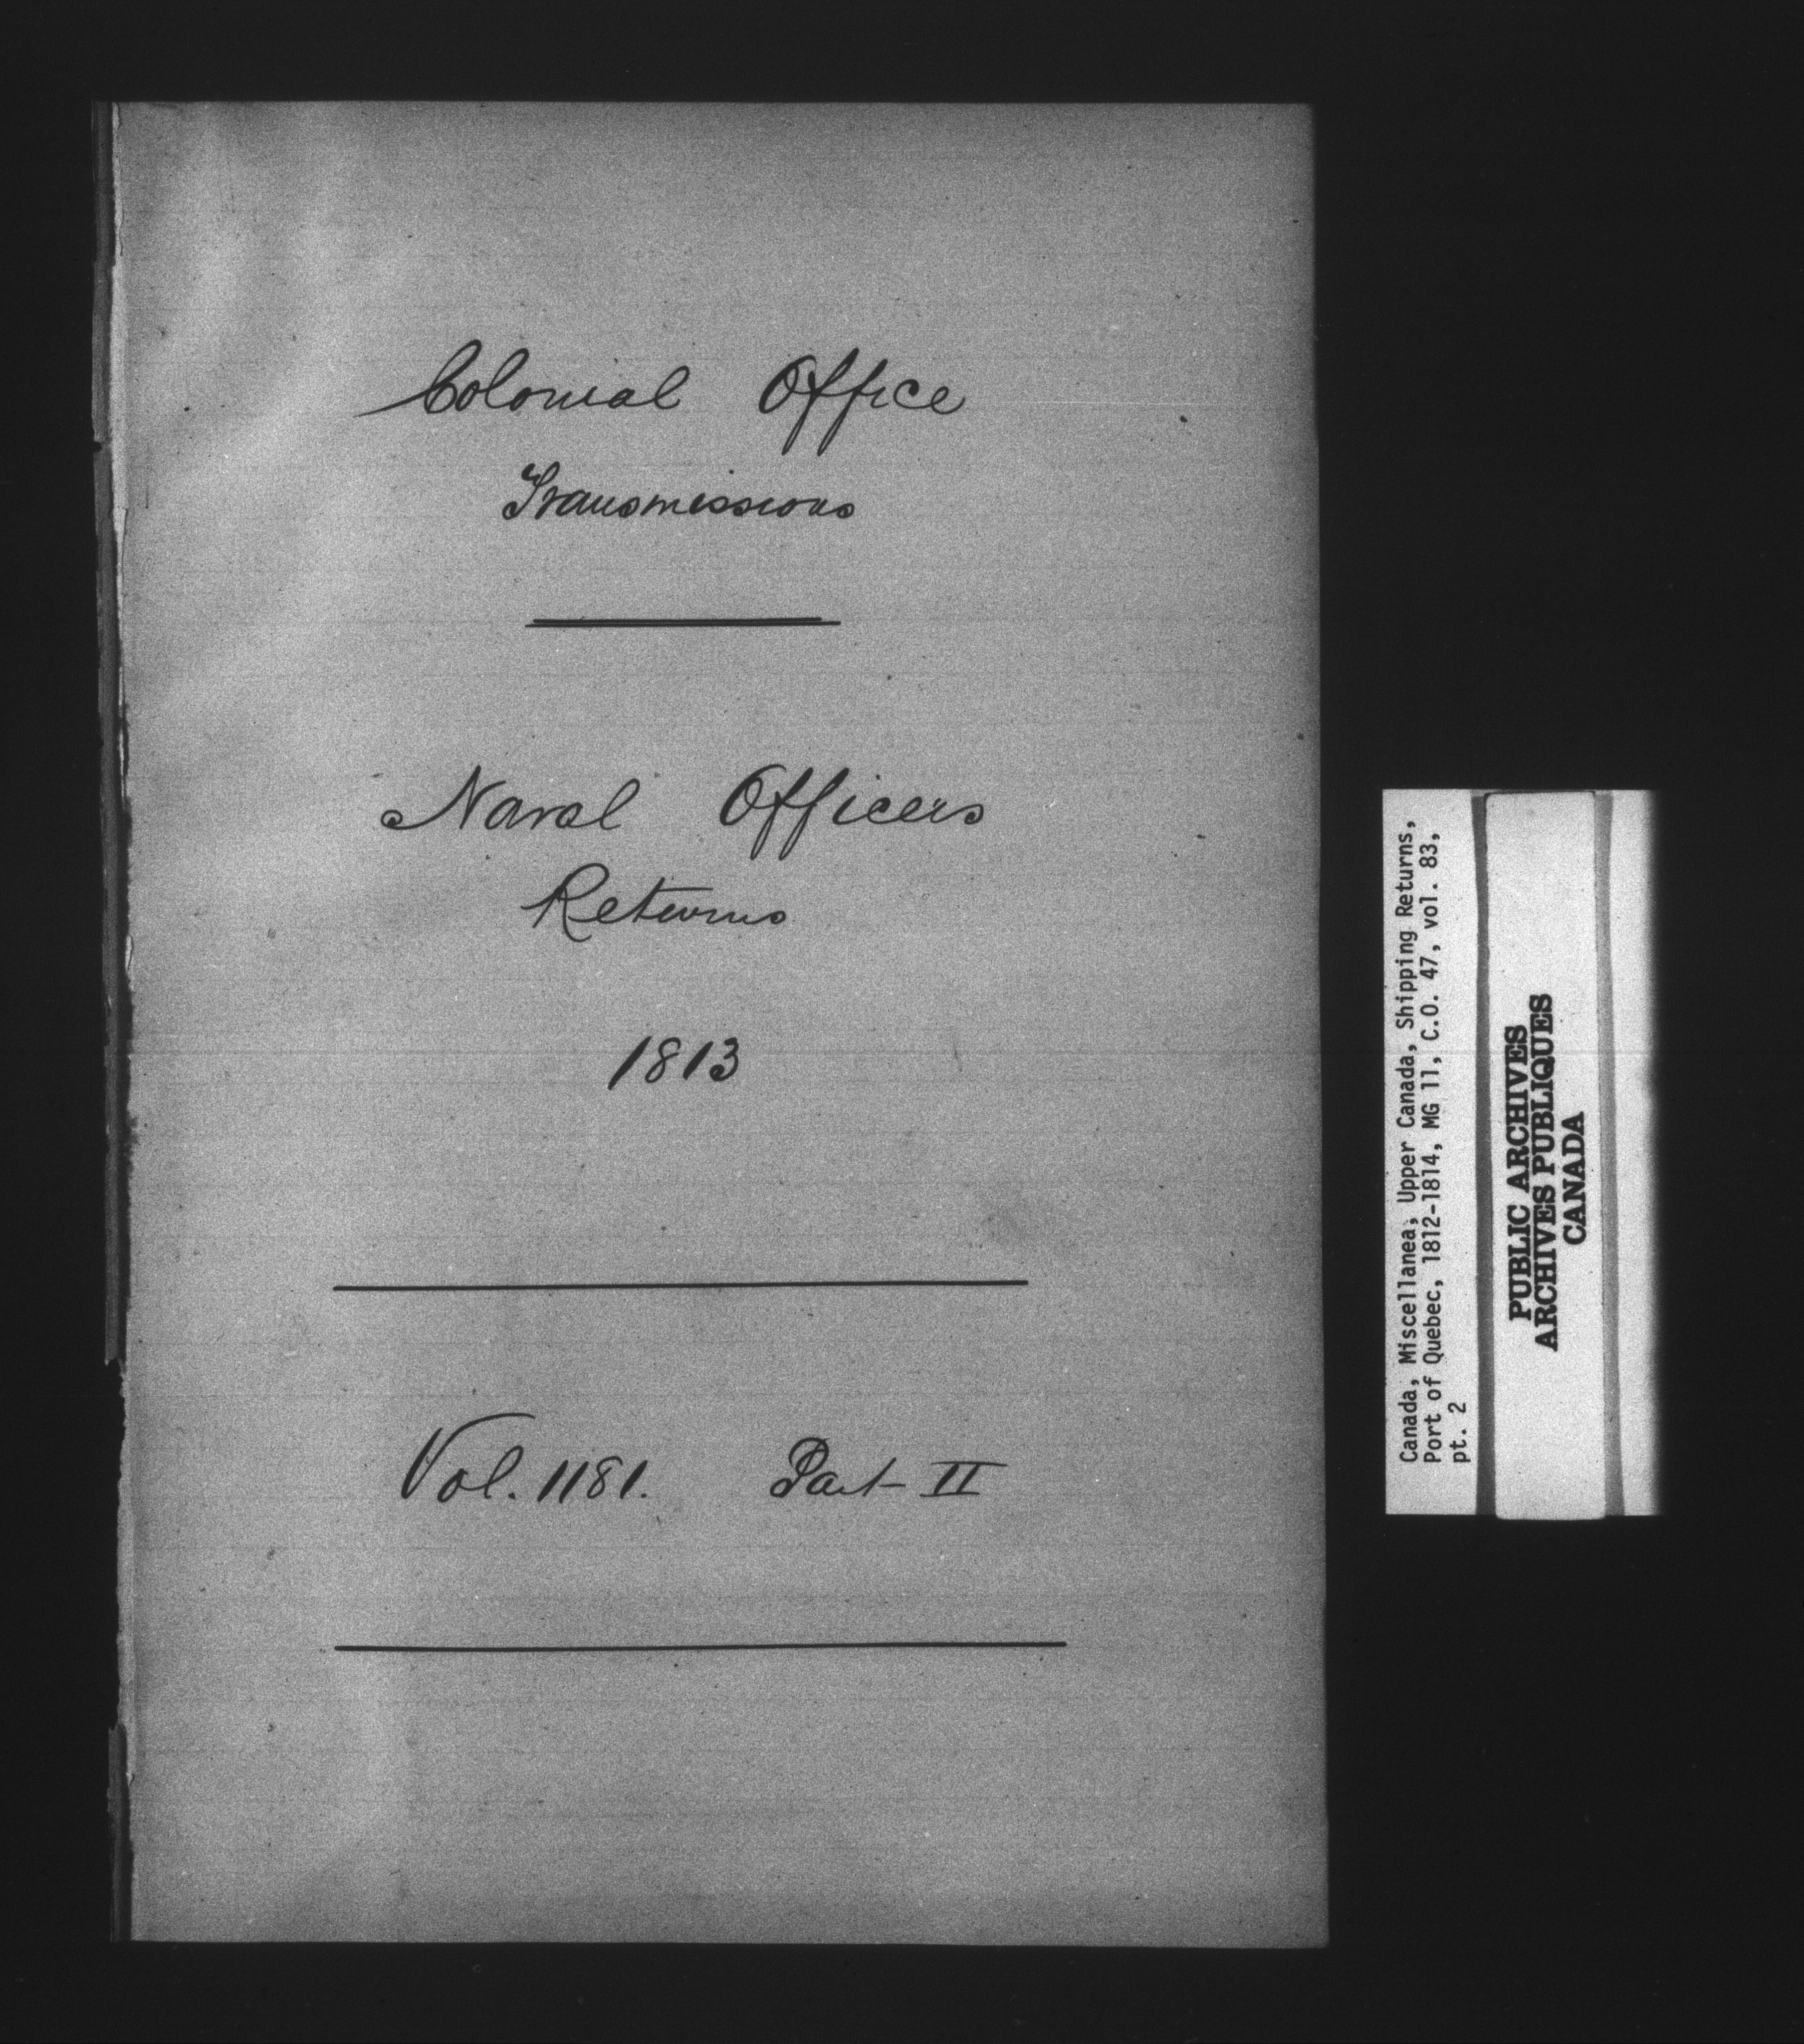 Colonial Office
Transmissions
Naval Officers
Returns
1813
Vol. 1181. Part II
Canada, Miscellanea, Upper Canada, Shipping Returns,
Port of Quebec, 1812-1814, MG 11, C.O. 47, vol. 83,
pt. 2
PUBLIC ARCHIVES
ARCHIVES PUBLIQUES
CANADA